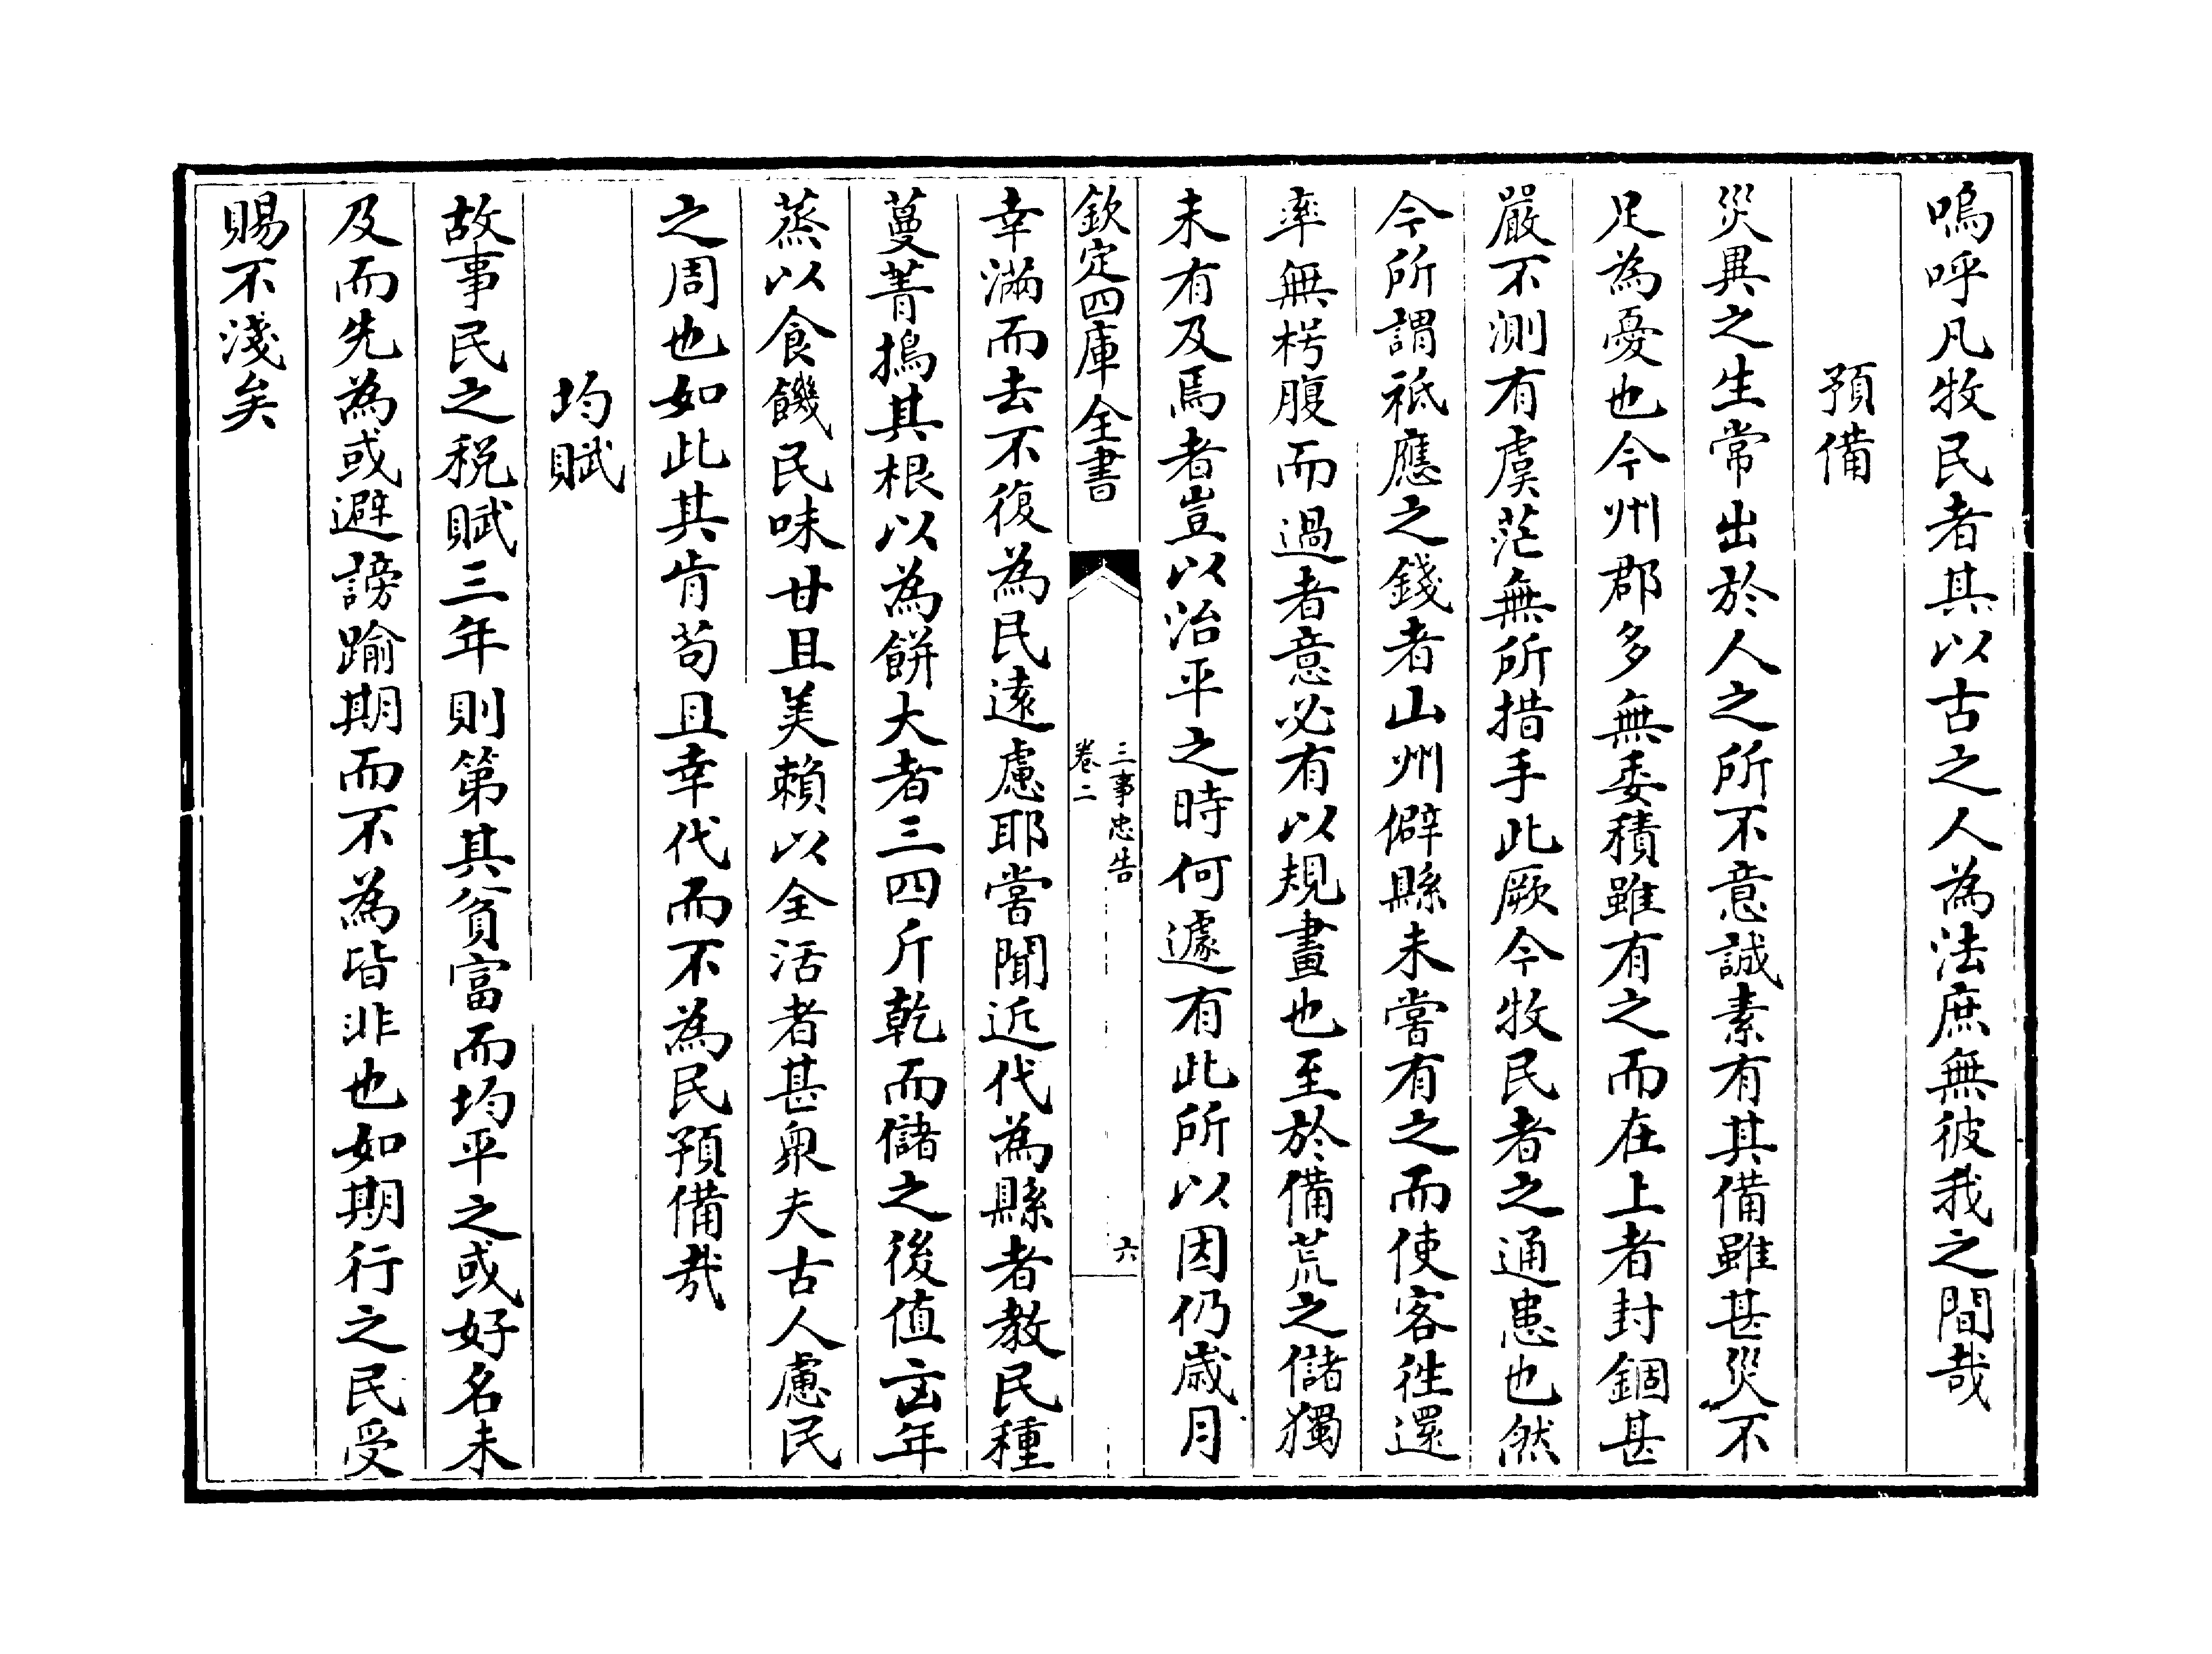 嗚呼凡牧民者其以古之人為法庶無彼我之間哉
預備
災異之生常出於人之所不意誠素有其備雖甚災不
足為憂也今州郡多無委積雖有之而在上者封錮甚
嚴不測有虞茫無所措手此厥今牧民者之通患也然
今所謂祗應之錢者山州僻縣未嘗有之而使客徃還
率無枵腹而過者意必有以規畫也至於備荒之儲獨
未有及焉者豈以治平之時何遽有此所以因仍歲月
欽定四庫全書
三事忠告
卷二
六
幸滿而去不復為民遠慮耶嘗聞近代為縣者教民種
蔓菁搗其根以為餅大者三四斤乾而儲之後值㐫年
蒸以食饑民味甘且美賴以全活者甚衆夫古人慮民
之周也如此其肯苟且幸代而不為民預備哉
均賦
故事民之稅賦三年則第其貧富而均平之或好名未
及而先為或避謗踰期而不為皆非也如期行之民受
賜不淺矣